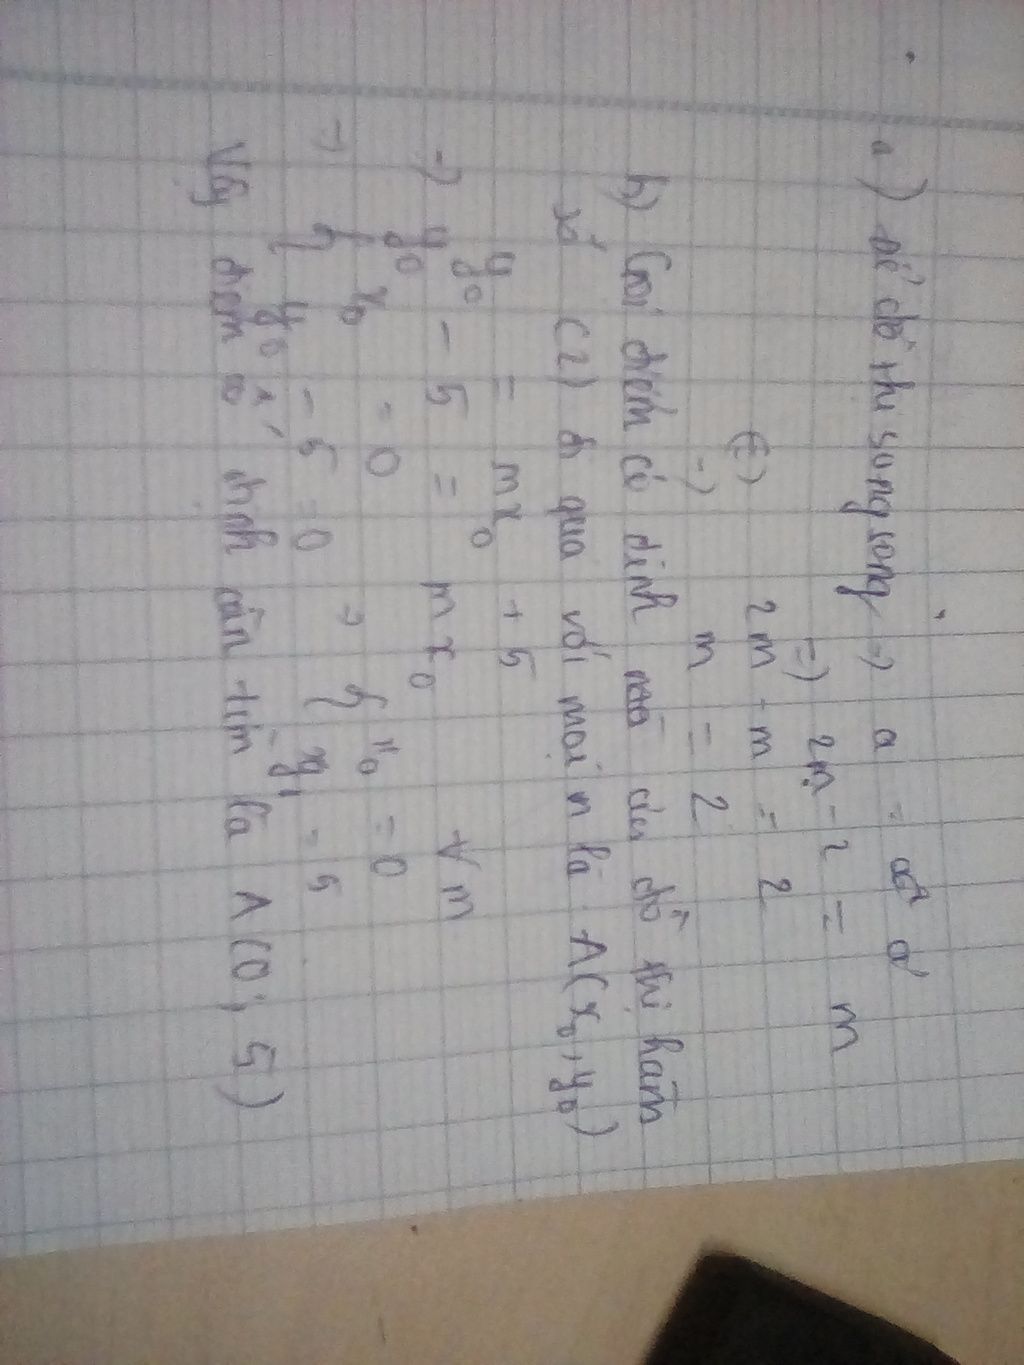 a) Để đồ thị song song => a = a'
=) 2m - 2 = m
(=) 2m - m = 2
=) m = 2
b) Gọi điểm cố định mà đồ thị hàm
số (2) đi qua với mọi m là A(x₀, y₀)
y₀ = mx₀ + 5
=) y₀ - 5 = mx₀ ∀ m
=> { x₀ = 0 => { x₀ = 0
y₀ - 5 = 0 = 5
Vậy điểm cố định cần tìm là A(0; 5)